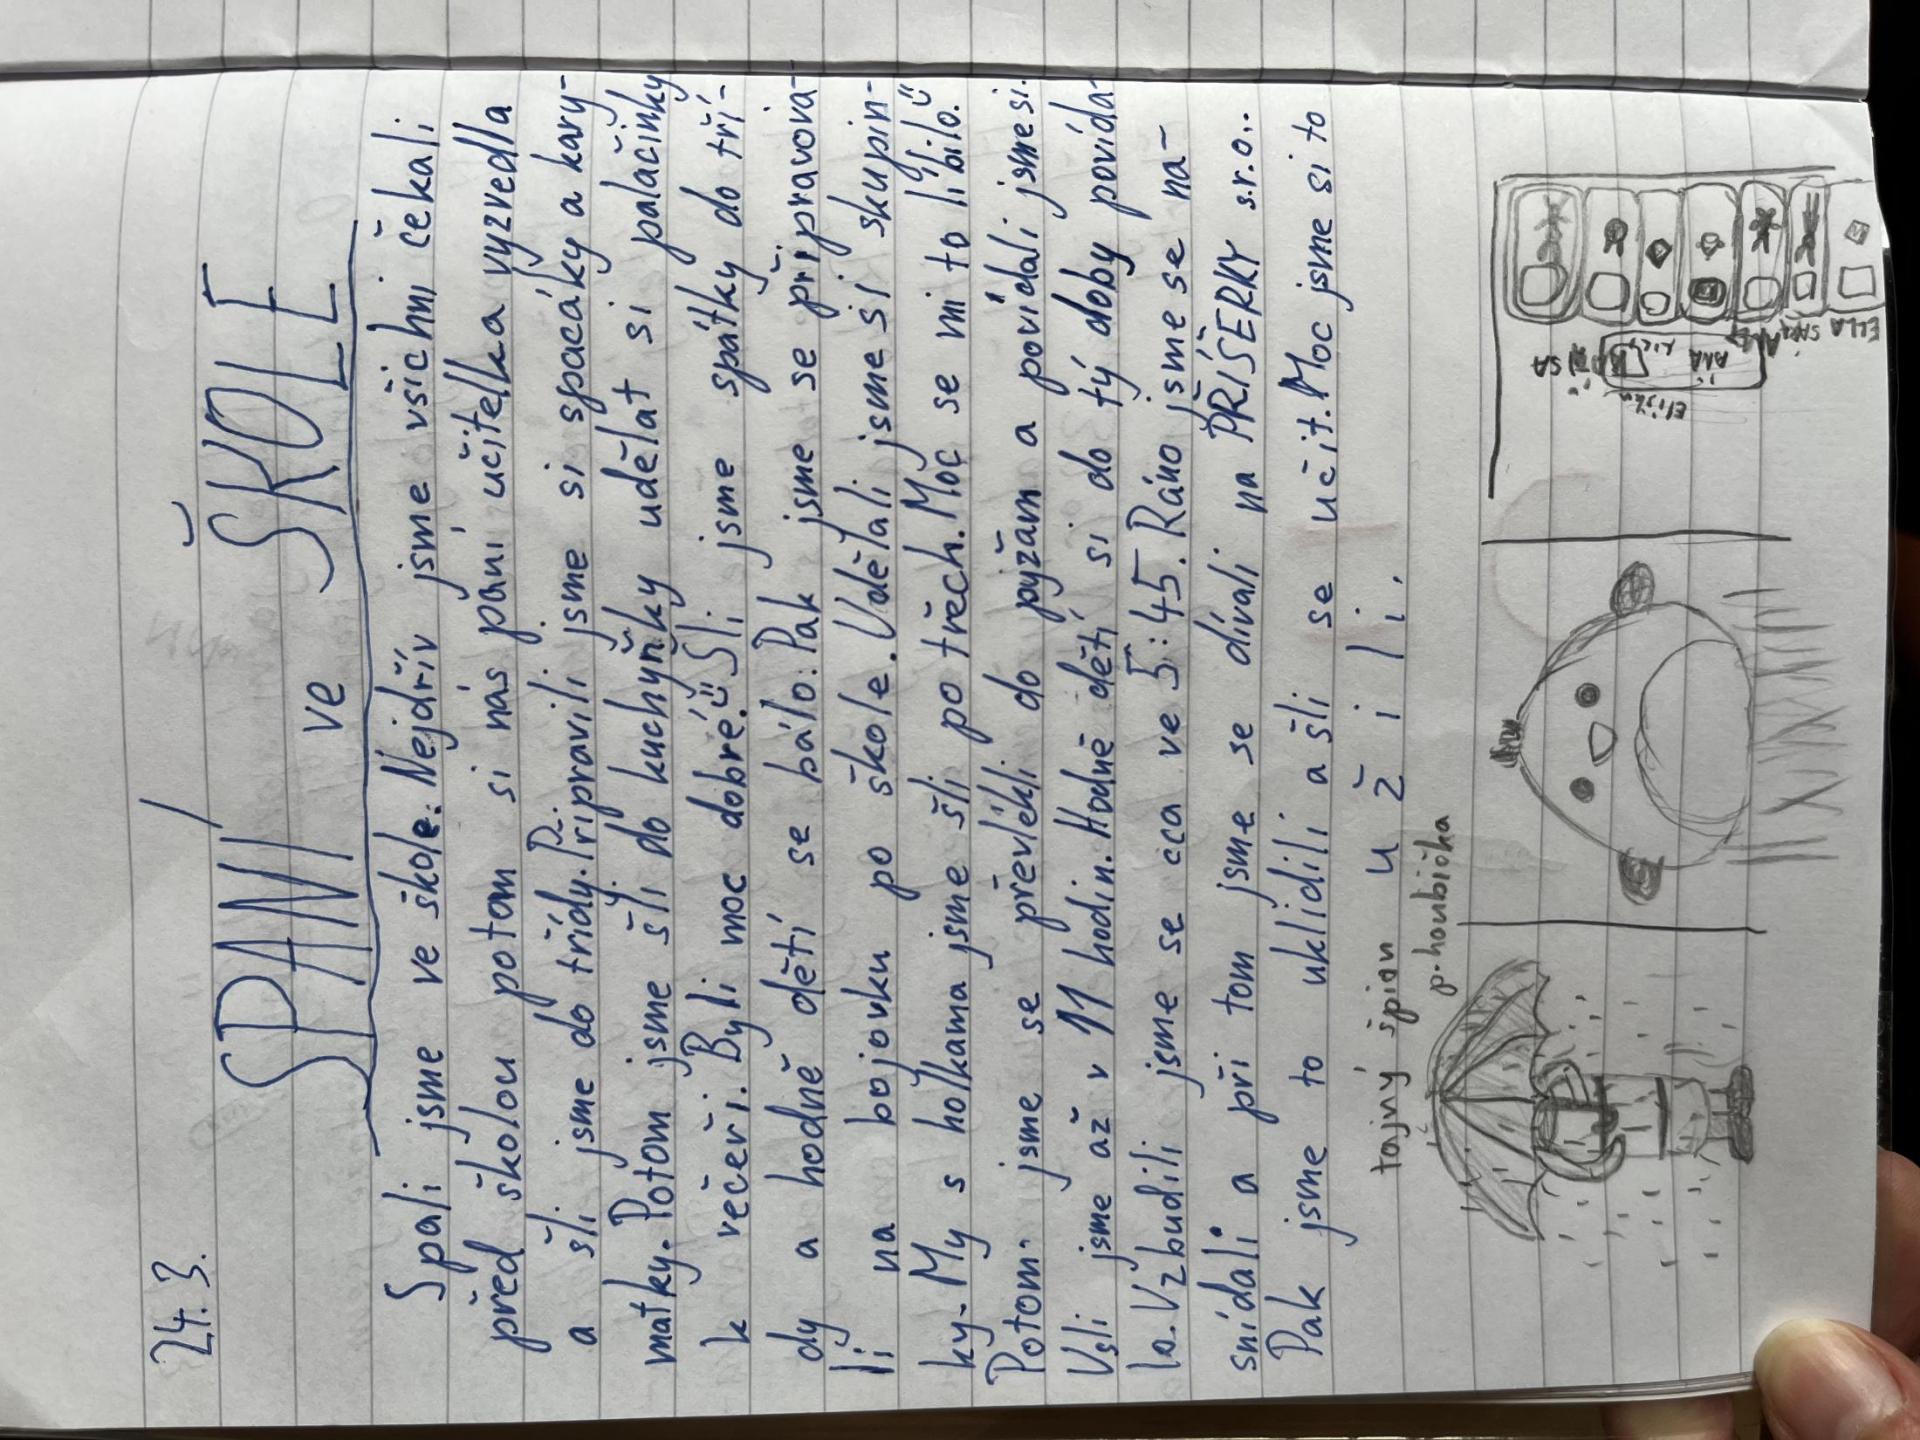 24.3.
SPANÍ ve ŠKOLE
Spali jsme ve škole. Nejdřív jsme všichni čekali
před školou potom si nás paní učitelka vyzvedla
a šli jsme do třídy. Připravili jsme si spacáky a kary-
matky. Potom jsme šli do kuchyňky udělat si palačinky
k večeři. Byli moc dobré. Šli jsme spátky do tří-
dy a hodně dětí se bálo. Pak jsme se připravova-
li na bojovku po škole. Udělali jsme si skupin-
ky. My s holkama jsme šli po třech. Moc se mi to líbilo.
Potom jsme se převlékli do pyžam a povídali jsme si.
Usli jsme až v 11 hodin. Hodně dětí si do tý doby povída-
lo. Vzbudili jsme se cca ve 5:45. Ráno jsme se na-
snídali a při tom jsme se dívali na PŘÍŠERKY s.r.o..
Pak jsme to uklidili a šli se učit. Moc jsme si to
užili.
tajný špion
p. houbička
Eliška
ELLA